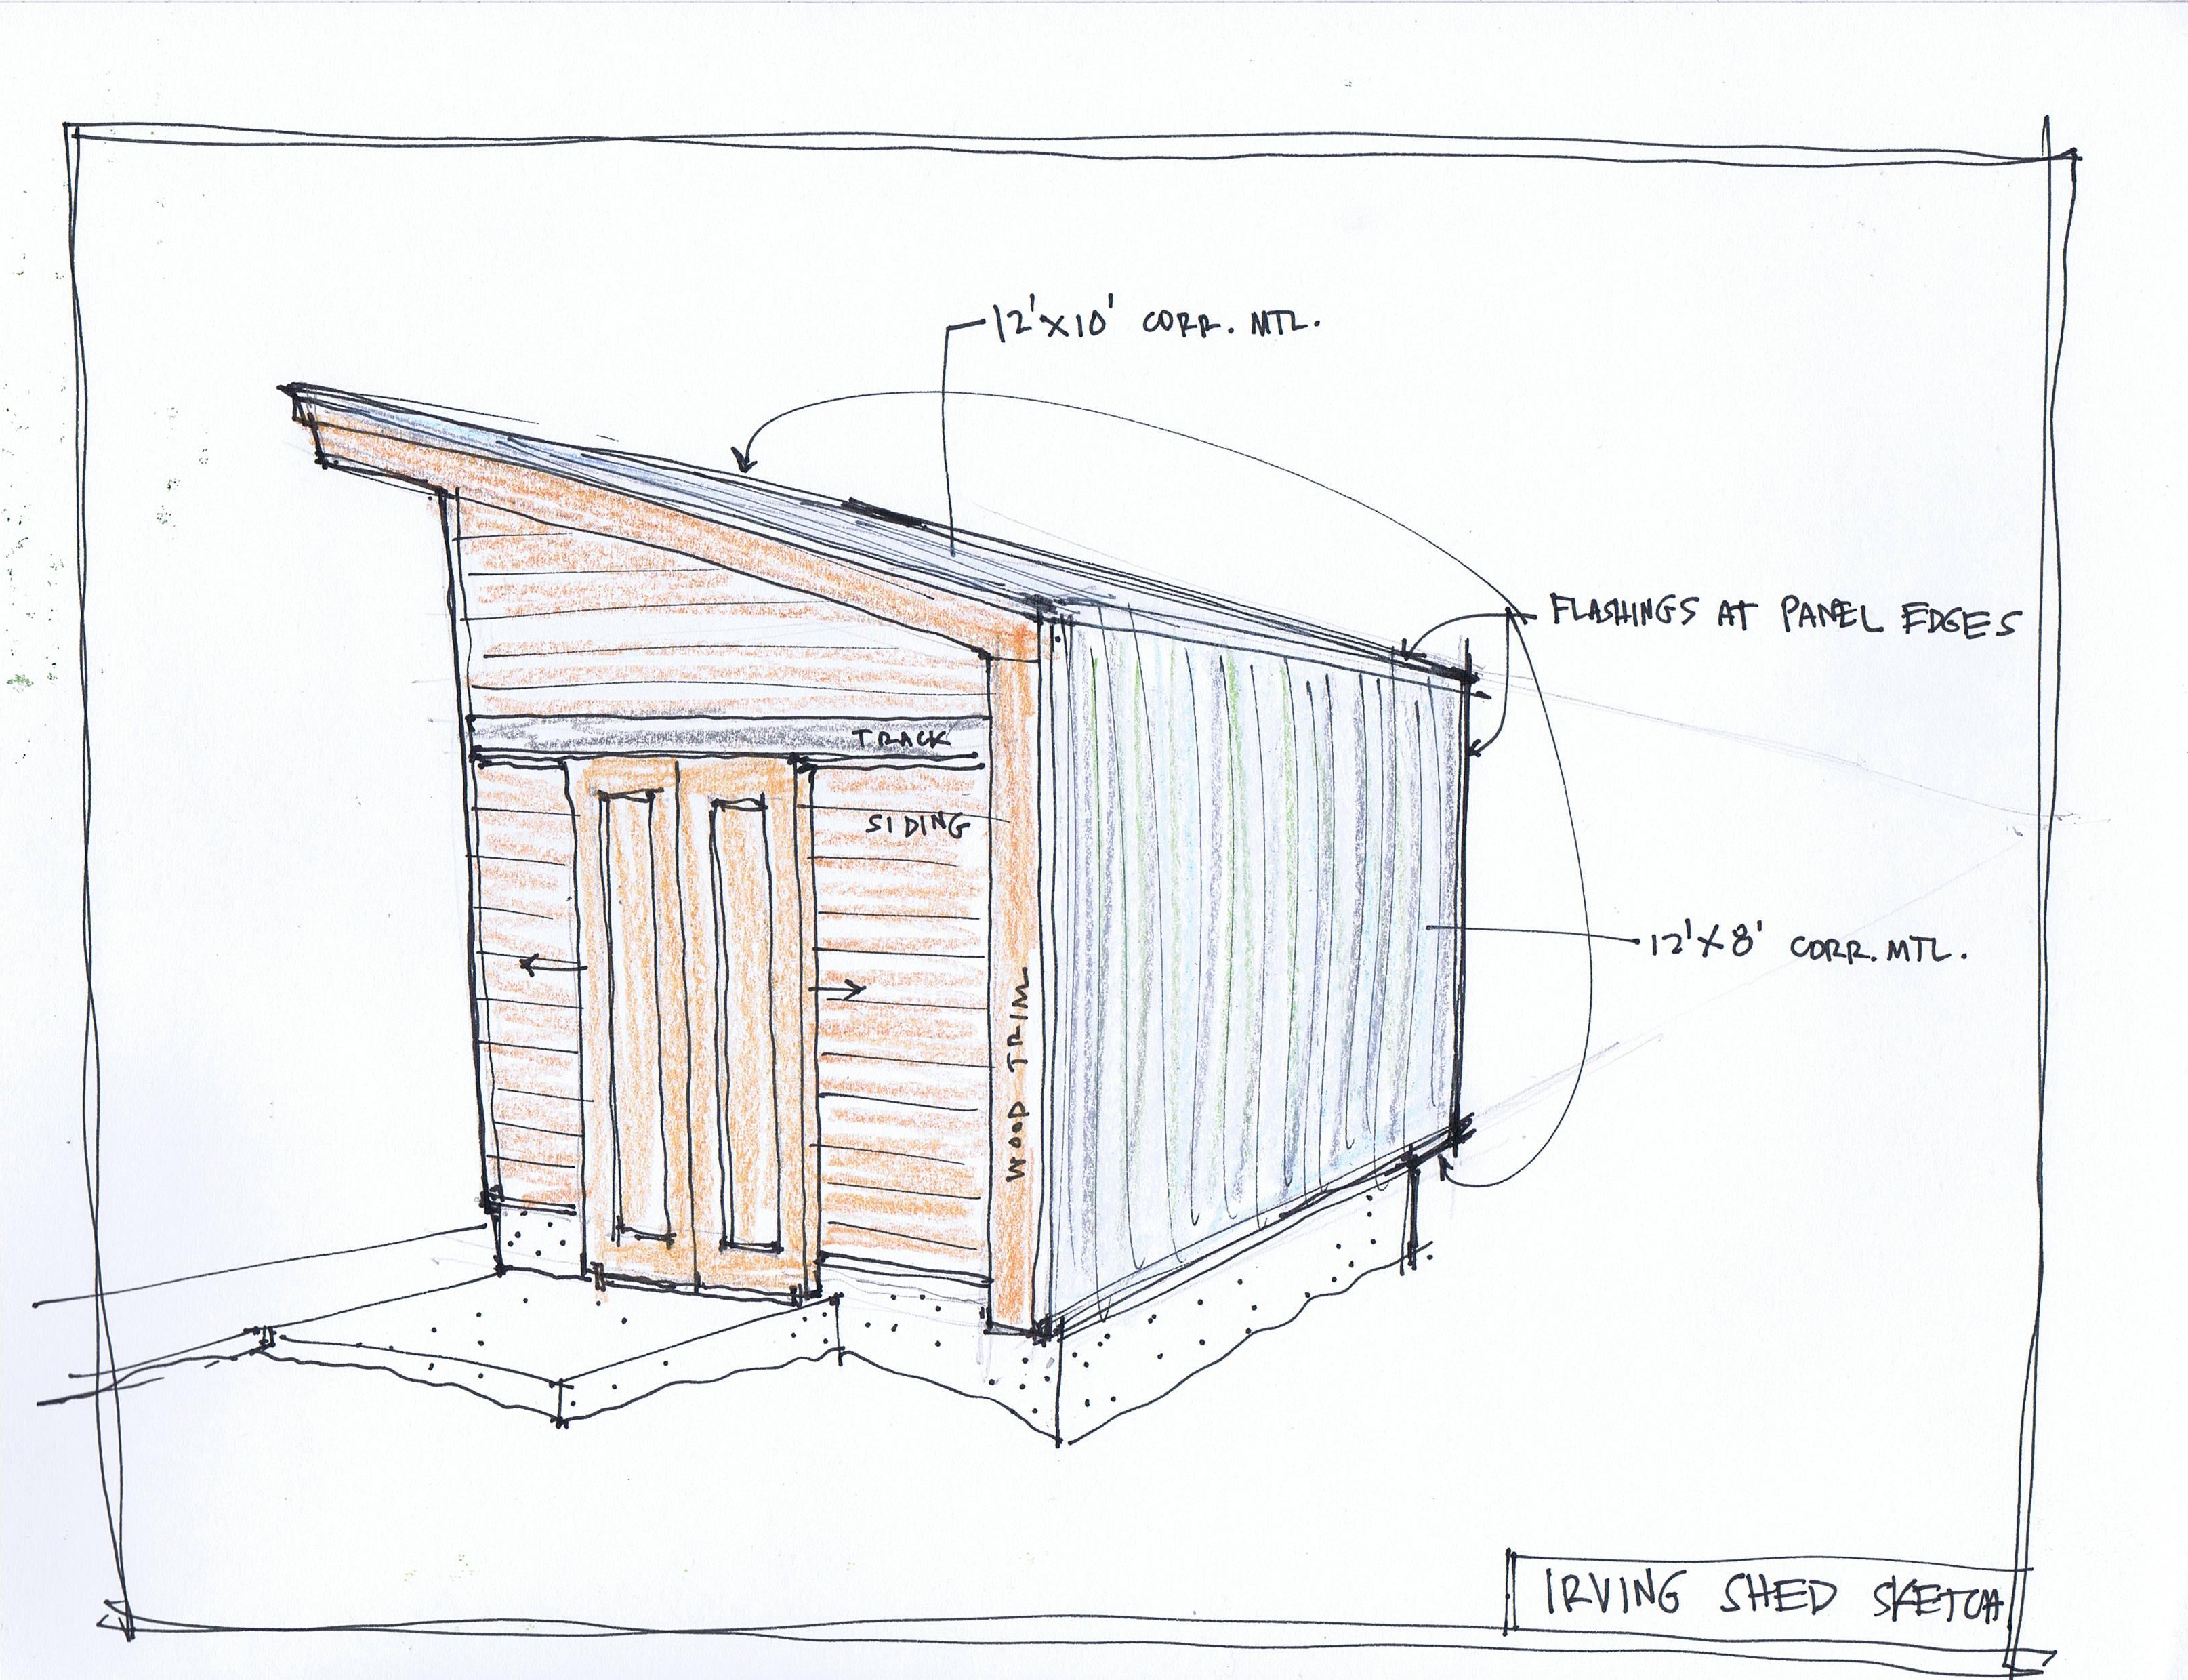 12'X10' CORR. MTL.
FLASHINGS AT PANEL EDGES
TRACK
SIDING
12'X8' CORR. MTL.
WOOD TRIM
IRVING SHED SKETCH